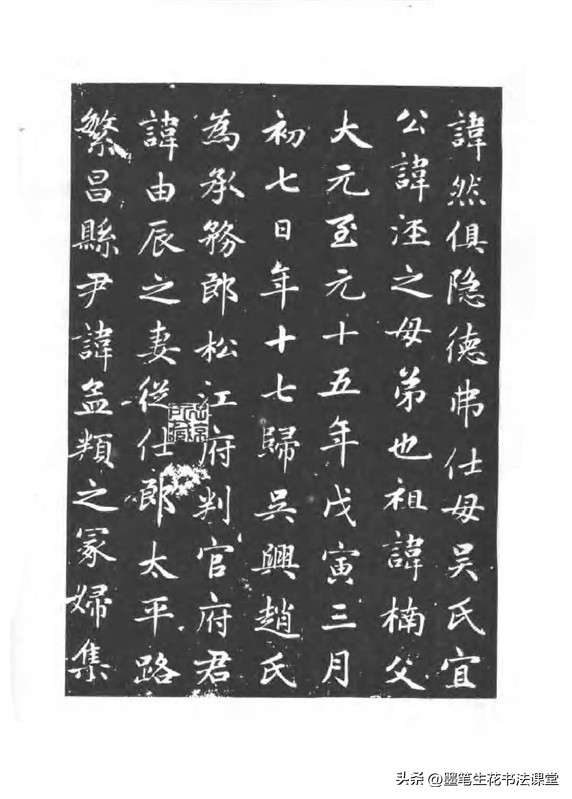 諱然俱隐德弗仕母吴氏宜
公諱洼之母弟也祖諱楠父
大元至元十五年戊寅三月
初七日年十七歸吴興趙氏
為承務郎松江府判官府君
諱由辰之妻從仕郎太平路
繁昌縣尹諱孟頖之冢婦集
头条@墨笔生花书法课堂